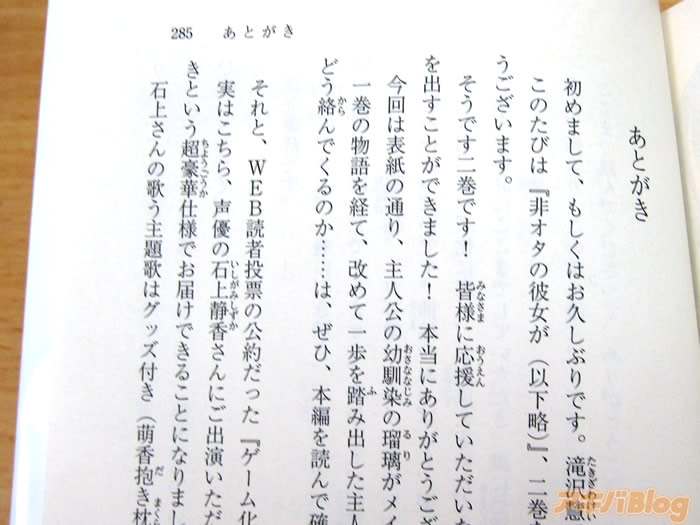 285 あとがき
あとがき
初めまして、もしくはお久しぶりです。滝沢慧
このたびは『非オタの彼女が（以下略）』、二巻
うございます。
そうです二巻です！ 皆様に応援していただいた
を出すことができました！ 本当にありがとうござ
今回は表紙の通り、主人公の幼馴染の瑠璃がメイ
一巻の物語を経て、改めて一歩を踏み出した主人
どう絡んでくるのか……は、ぜひ、本編を読んで確
それと、ＷＥＢ読者投票の公約だった『ゲーム化
実はこちら、声優の石上静香さんにご出演いただ
きという超豪華仕様でお届けできることになりまし
石上さんの歌う主題歌はグッズ付き（萌香抱き枕
アキバBlog